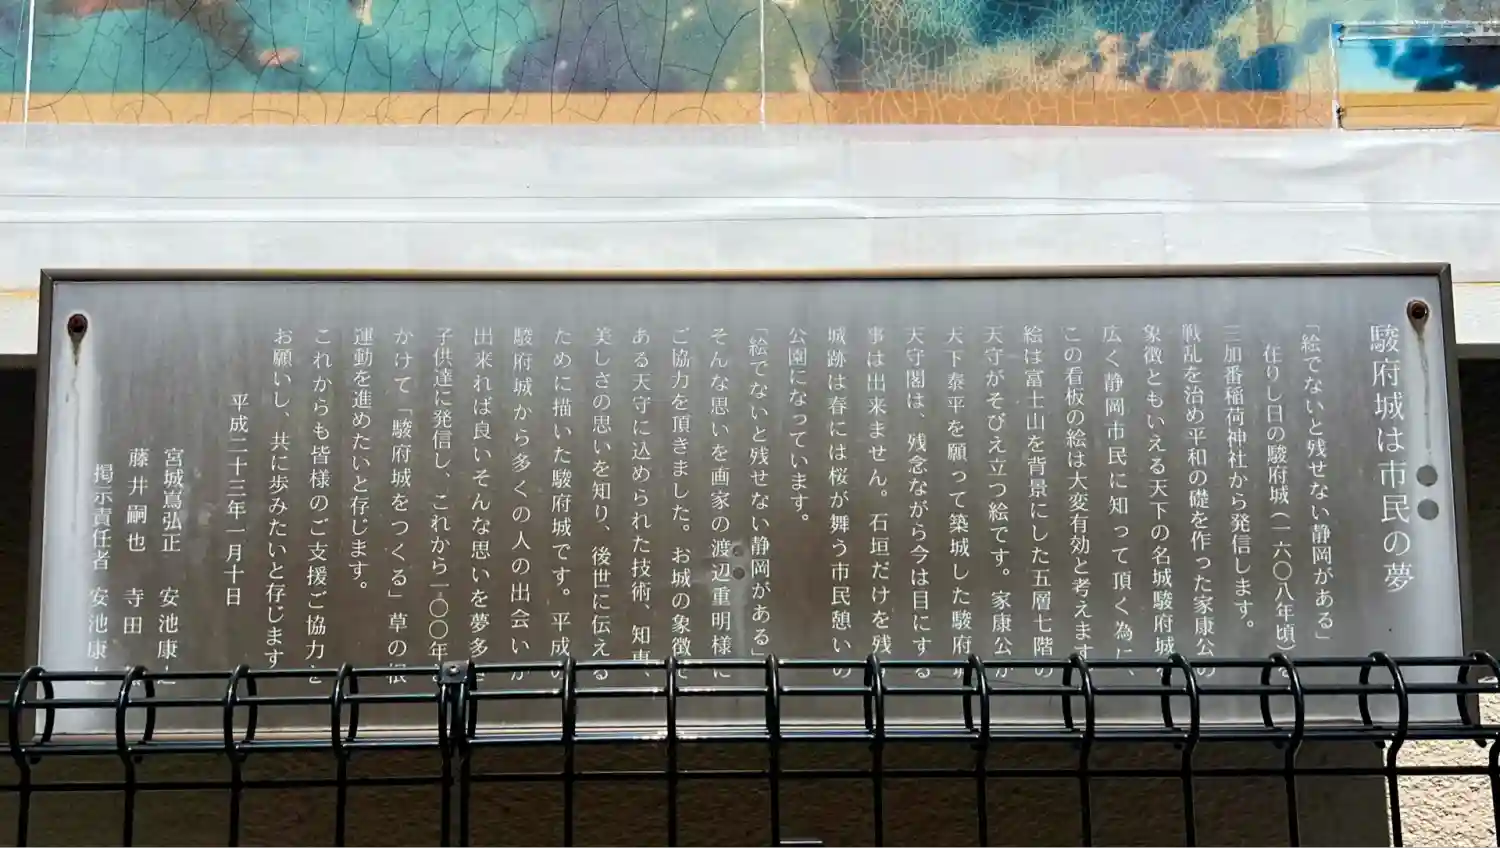 駿府城は市民の夢
「絵でないと残せない静岡がある」
在りし日の駿府城(一六〇八年頃)を
三加番稲荷神社から発信します。
戦乱を治め平和の礎を作った家康公の
象徴ともいえる天下の名城駿府城を
広く静岡市民に知って頂く為に、
この看板の絵は大変有効と考えます
絵は富士山を背景にした五層七階の
天守がそびえ立つ絵です。家康公が
天下泰平を願って築城した駿府城
天守閣は、残念ながら今は目にする
事は出来ません。石垣だけを残
城跡は春には桜が舞う市民憩いの
公園になっています。
「絵でないと残せない静岡がある」
そんな思いを画家の渡辺重明様に
ご協力を頂きました。お城の象徴で
ある天守に込められた技術、知恵、
美しさの思いを知り、後世に伝える
ために描いた駿府城です。平成の
駿府城から多くの人の出会いが
出来れば良いそんな思いを夢多き
子供達に発信し、これから一〇〇年
かけて「駿府城をつくる」草の根
運動を進めたいと存じます。
これからも皆様のご支援ご協力を
お願いし、共に歩みたいと存じます
平成二十三年一月十日
宮城嶌弘正 安池康
藤井嗣也 寺田
掲示責任者 安池康